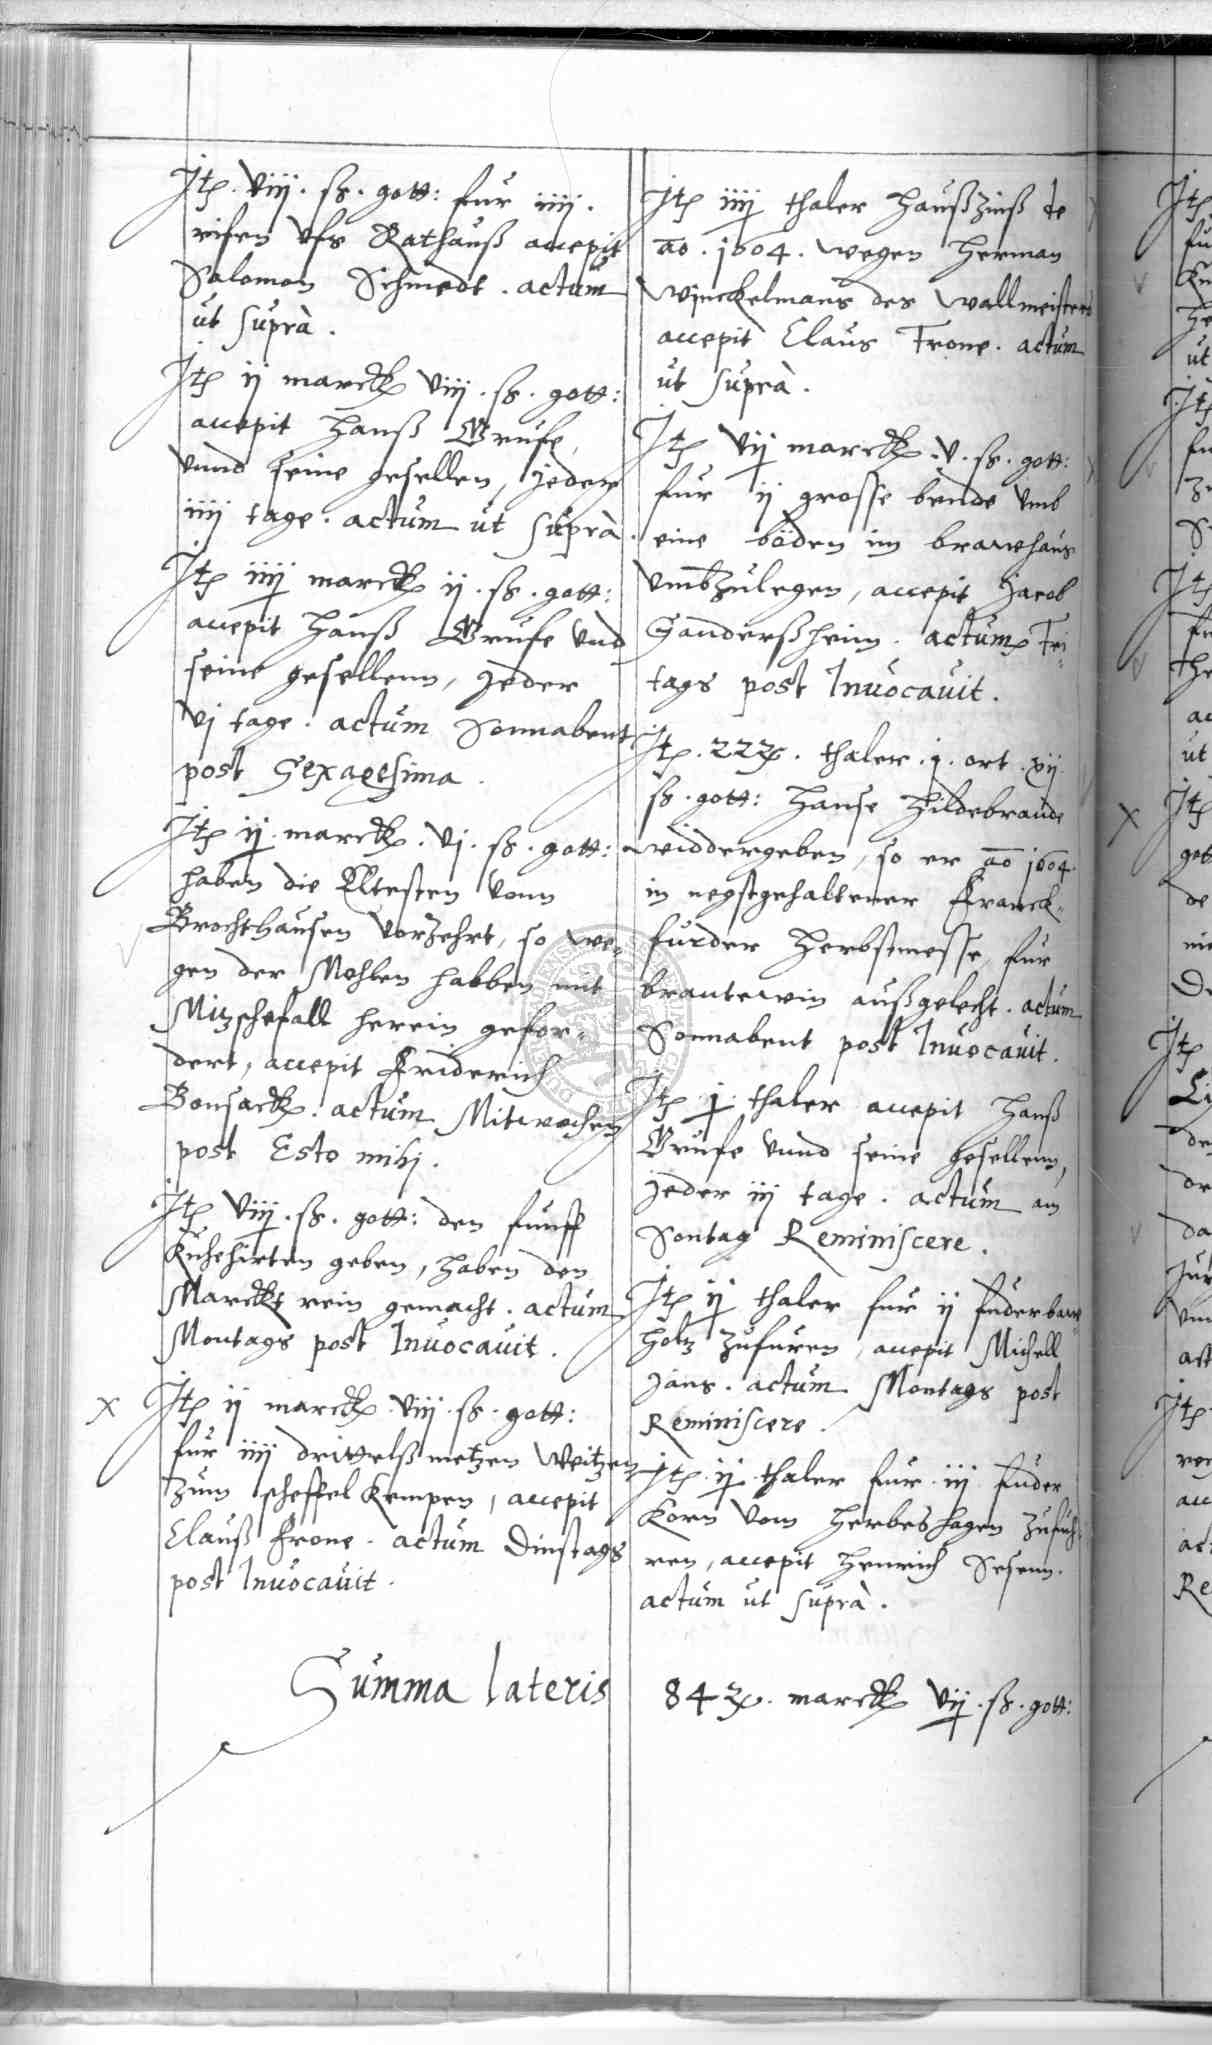 Itꝫ. viij. ß. gott: fur iiij.
eisen vfs Rathauß accepit
Salomon Schmedt. actum
ut suprà.
Itꝫ ij marck viij. ß. gott:
accepit Hanß Grufe,
vnnd seine gesellen, jeder
iiij tage. actum ut suprà.
Itꝫ iiij marck ij. ß. gott:
accepit Hanß Grufe vnd
seine gesellenn, jeder
vj tage. actum Sonnabent
post Sexagesima.
Itꝫ ij. marck. vj. ß. gott:
haben die Eltesten vonn
Brochthausen vorzehrt, so we-
gen der Mohlen habben mit
Mitzschefall herein gefor-
dert, accepit Friderich
Bonsack. actum Mitwochen
post Esto mihj.
Itꝫ viij. ß. gott: den funff
Kuhehirten geben, haben den
Marckt rein gemacht. actum
Montags post Inuocauit.
Itꝫ ij marck. viij. ß. gott:
fur iiij drittelß metzen Weitzen
zum scheffel Kempen, accepit
Clauß Frone. actum Dinstags
post Inuocauit.
Itꝫ iiij thaler Haußzinß de
ao. 1604. wegen Herman
Winckelmans des Wallmeisters
accepit Claus Frone. actum
ut suprà.
Itꝫ vij marck. v. ß. gott:
fur ij grosse bende vmb
eine böden im brawhaus
vmbzulegen, accepit Jacob
Ganderßheim. actum Frei-
tags post Inuocauit.
Itꝫ. 22 . thaler. j. ort. xij.
ß. gott: Hanse Hildebrande
widdergeben, so er ao 1604.
in negstgehaltener Franck-
furder Herbstmesse, fur
brantewin außgelecht. actum
Sonnabent post Inuocauit.
Itꝫ j. thaler accepit Hanß
Grufe vnnd seine gesellenn,
jeder iij tage. actum am
Sontag Reminiscere.
Itꝫ ij thaler fur ij fuder baw-
holtz zufuren, accepit Michell
Jans. actum Montags post
Reminiscere.
Itꝫ. ij. thaler fur. iij. fuder
Korn vom Herbeshagen zufuh-
ren, accepit Henrich Sesenn.
actum ut suprà.
Summa lateris 84 . marck vij. ß. gott: